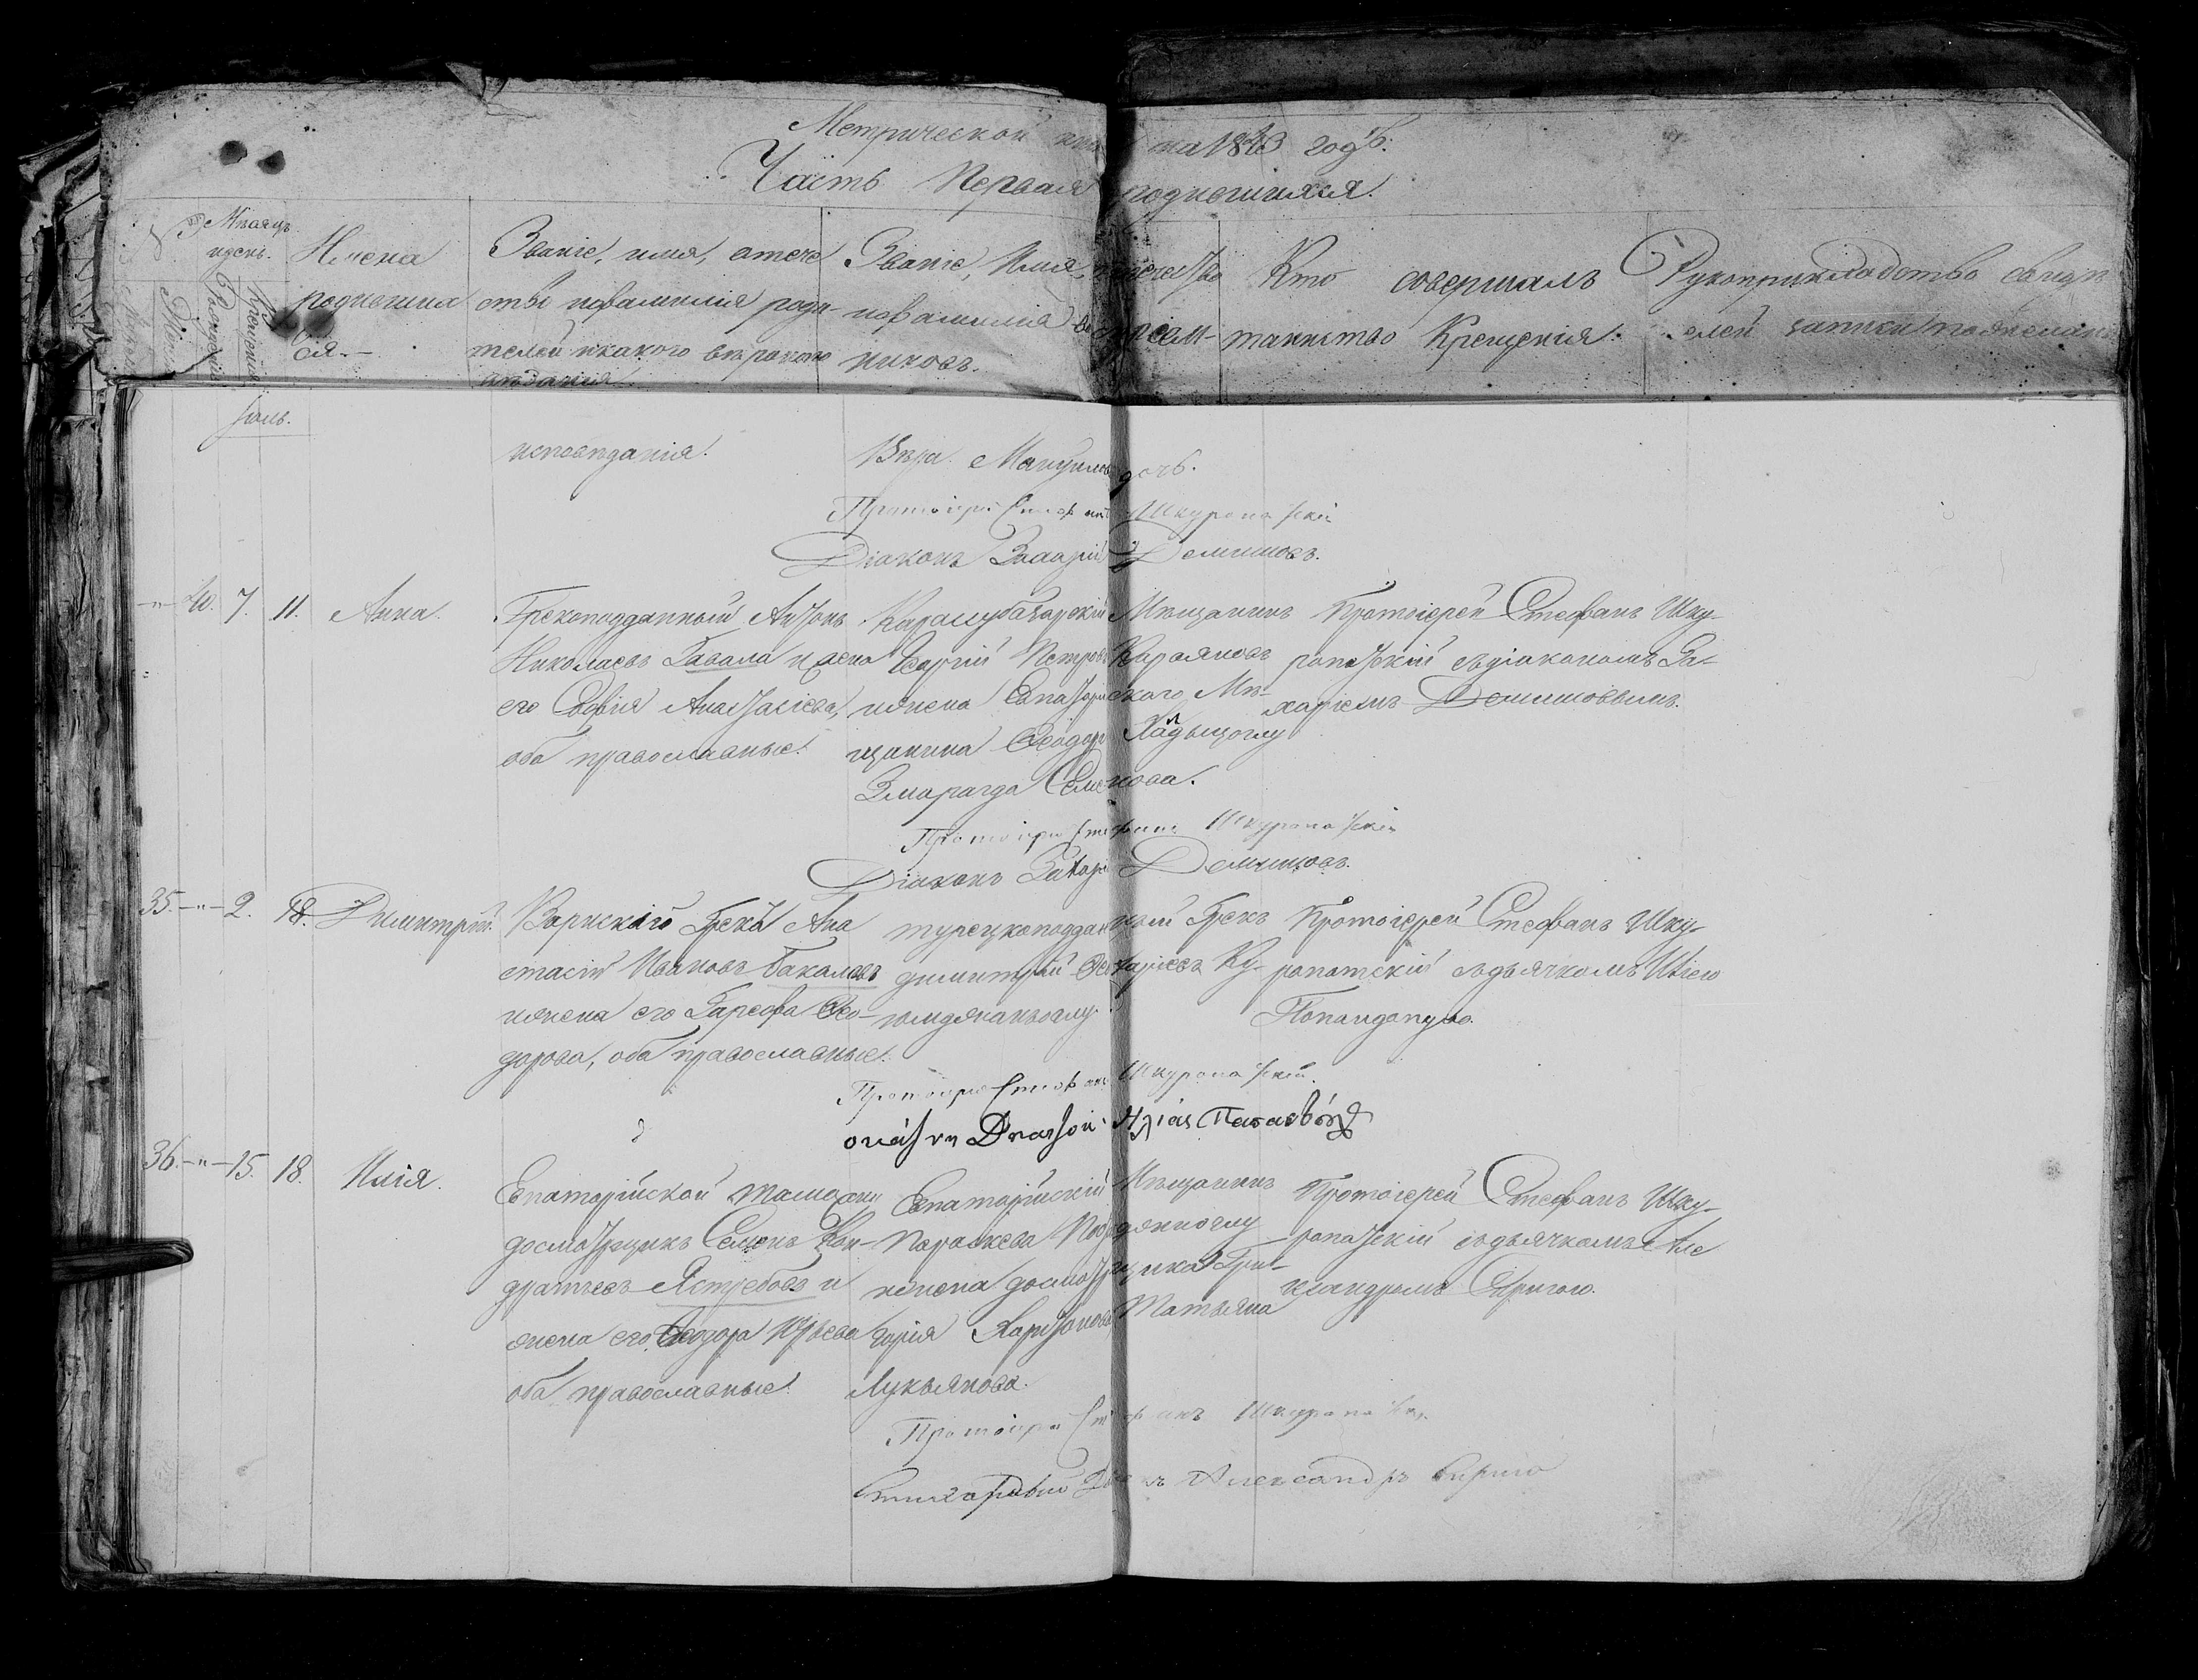 Метрической на 1843 годъ.
Часть Первая родившихся.
Мѣсяцъ и день.
Рожденія
Крещенія
Имена родившихся.
Званіе, имя, отечество и фамилія родителей и какого вѣроисповѣданія.
Званіе, Имя, отечество и фамилія воспріемниковъ.
Кто совершалъ таинство Крещенія.
Рукоприкладство свидѣтелей записи по желанію
Іюль.
исповѣданія.
Вѣра Мануилова дочь.
Протоіерей Стефанъ Шкуропатскій
Діаконъ Захарій Демишовъ.
7. 11. Анна.
Грекоподданный Антонъ
Николаевъ Гавала и жена
его Софія Анастасіева,
оба православные.
Карасубазарскій Мѣщанинъ
Георгій Петровъ Караяновъ
и жена Евпаторійскаго Мѣ-
щанина Ѳеодора Хадыцоглу
Змарагда Семенова.
Протоіерей Стефанъ Шку-
ропатскій съ діакономъ За-
харіемъ Демишовымъ.
Протоіерей Стефанъ Шкуропатскій
Діаконъ Захарій Демишовъ.
35. -"- 2. 18. Димитрій.
Варнскій Грекъ Ана
стасій Ивановъ Бакаловъ
и жена его Ѳео-
дорова, оба православные.
турецкоподданный Грекъ
Димитрій Ку-
юмджаньоглу.
Протоіерей Стефанъ Шку-
ропатскій съ дьячкомъ Иліею
Папандопуло.
Протоіерей Стефанъ Шкуропатскій.
36. -"- 15. 18. Илія.
Евпаторійской таможни
досмотрщикъ Семенъ Кон-
дратьевъ Ястребовъ и
жена его Ѳеодора Юрьева
оба православные.
Евпаторійскій Мѣщанинъ
Параскева
и жена досмотрщика Гри-
горія Харитонова Татьяна
Лукьянова.
Протоіерей Стефанъ Шку-
ропатскій съ дьячкомъ Але
ксандромъ Сириго.
Протоіерей Стефанъ Шкуропатскій.
Стихарный Дьячекъ Александръ Сириго